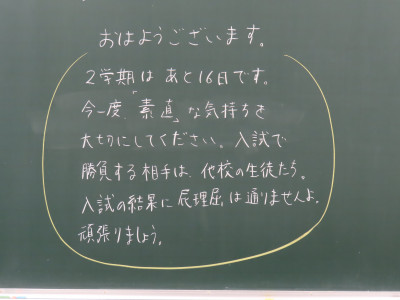 おはようございます。
2学期は あと16日です。
今一度「素直」な気持ちを
大切にしてください。入試で
勝負する相手は、他校の生徒たち。
入試の結果に屁理屈は通りませんよ。
頑張りましょう。